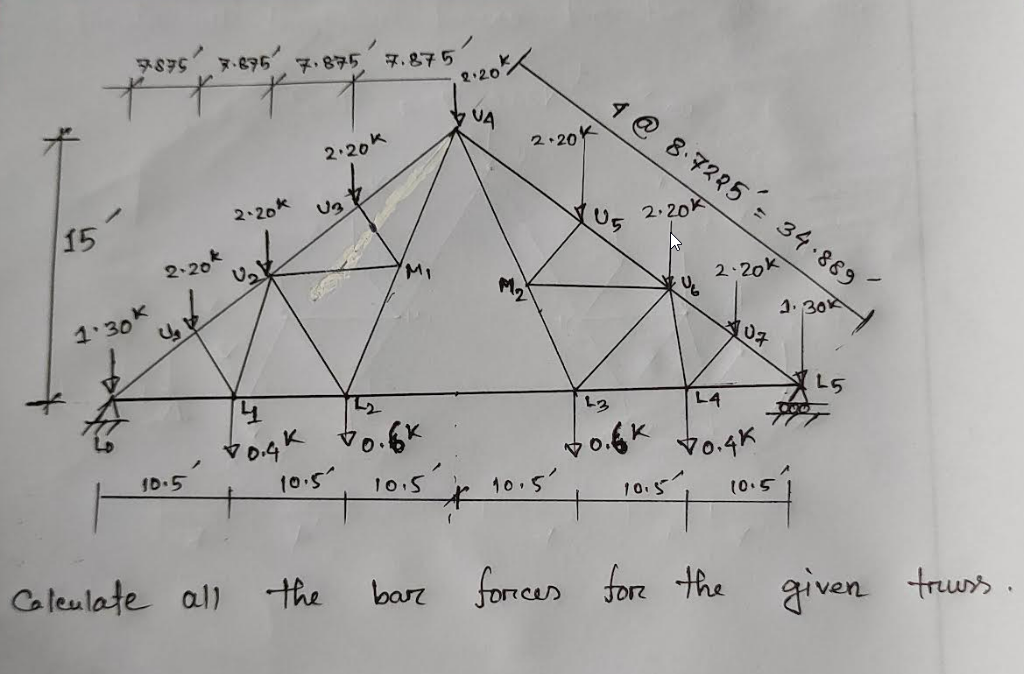 7.875' 7.875' 7.875' 7.875'
2.20K
U4
4 @ 8.7225' = 34.889 -
2.20K
2.20K
U3
U5
2.20K
2.20K
15'
U2
M1
M2
U6
2.20K
2.20K
1.30K
U1
U7
1.30K
L0
L1
L2
L3
L4
L5
0.4K
0.6K
0.6K
0.4K
10.5' 10.5' 10.5' 10.5' 10.5' 10.5'
Calculate all the bar forces for the given truss.